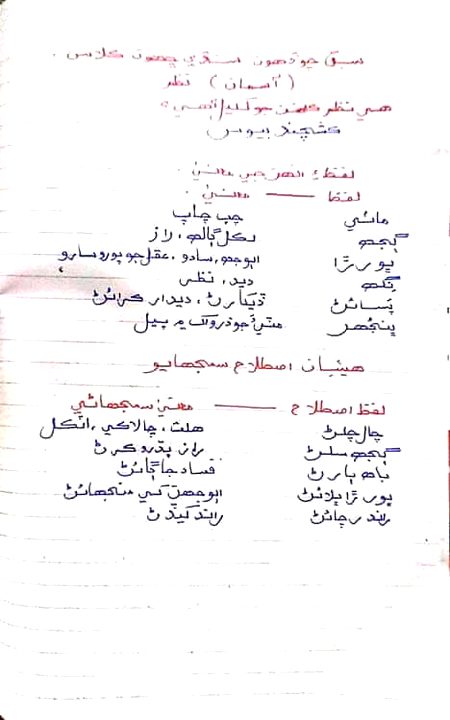 سبق چوڏهون سنڌي ڇهون ڪلاس.
(آسمان) نظر
هي نظر ڪنهن جو لکيل آهي؟
ڪشنچند بيوس
لفظ ۽ انهن جي معنيٰ.
لفظ — معنيٰ.
ماٺي چپ چاپ
ڳجھ لڪل ڳالھ، راز
ٻورڙا اٻوجھ، سادو، عقل جو پورو سارو
نگھ ديد، نظر
پَسائڻ ڏيکارڻ، ديدار ڪرائڻ
پنجهر مٽيءَ جو ذروڪ ۾ ٻيل
هيٺيان اصطلاح سمجهايو
لفظ اصطلاح — معنيٰ سمجهاڻي
چال چلڻ هلت، چالاڪي، اٽڪل
ڳجھ سلڻ راز پڌرو ڪرڻ
باھ ٻارڻ فساد جاڳائڻ
ٻورڙا ٻلائڻ اٻوجهن کي سمجهائڻ
راند رچائڻ راند کيڏڻ